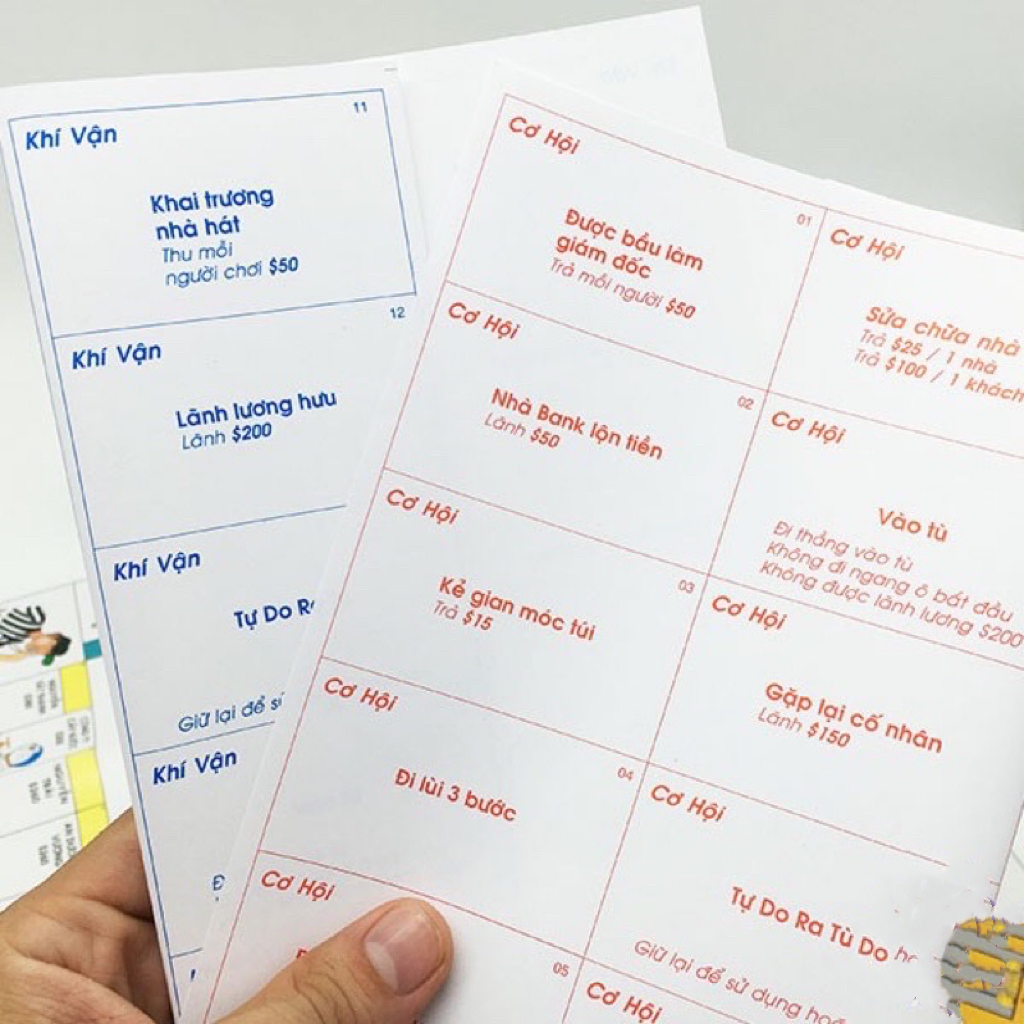 11
Khí Vận
Khai trương
nhà hát
Thu mỗi
người chơi $50
12
Khí Vận
Lãnh lương hưu
Lãnh $200
Khí Vận
Tự Do
Giữ lại để
Khí Vận
Cơ Hội
01
Được bầu làm
giám đốc
Trả mỗi người $50
Cơ Hội
02
Nhà Bank lộn tiền
Lãnh $50
Cơ Hội
03
Kẻ gian móc túi
Trả $15
Cơ Hội
04
Đi lùi 3 bước
Cơ Hội
05
Cơ Hội
Sửa chữa nhà
Trả $25 / 1 nhà
Trả $100 / 1 khách
Cơ Hội
Vào tù
Đi thẳng vào tù
Không đi ngang ô bắt đầu
Không được lãnh lương $200
Cơ Hội
Gặp lại cố nhân
Lãnh $150
Cơ Hội
Tự Do Ra Tù Do
Giữ lại để sử dụng
Cơ Hội